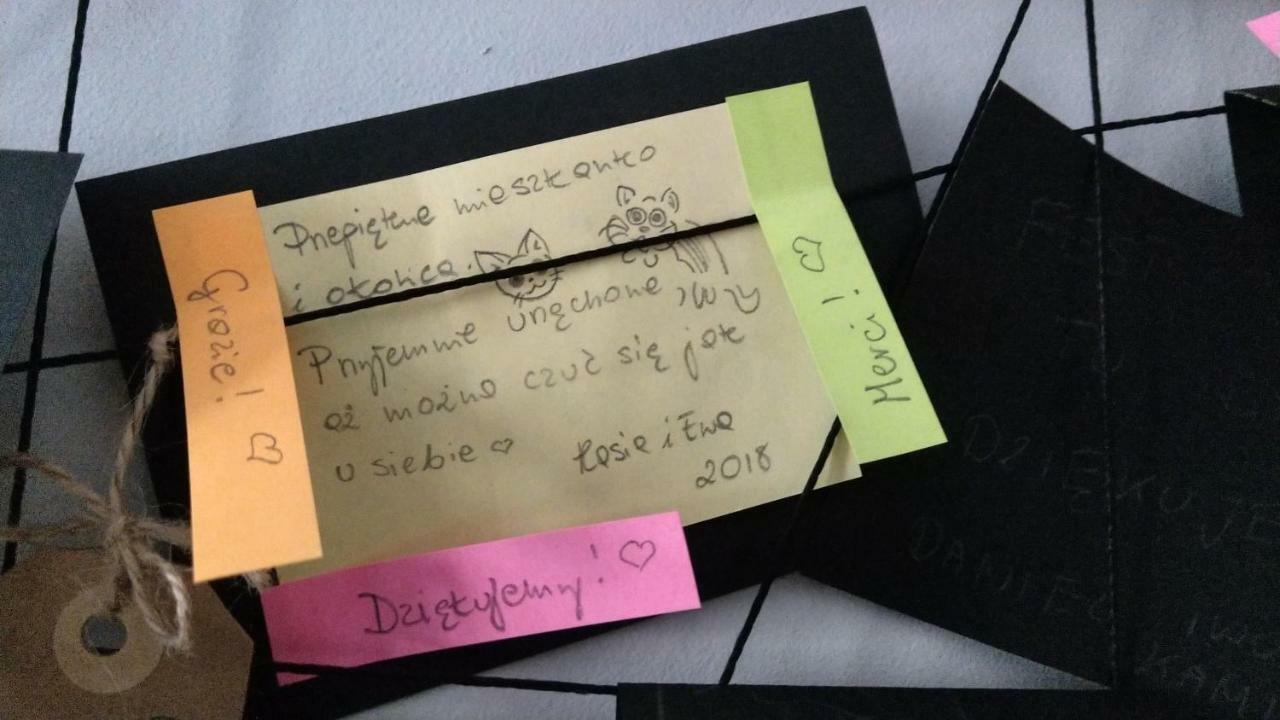 Przepiękne mieszkanko
i okolica.
Przyjemnie urządzone,
aż można czuć się jak
u siebie ♡
Kasia i Ewa
2018
Grazie! ♡
Merci! ♡
Dziękujemy! ♡
DZIĘKUJE